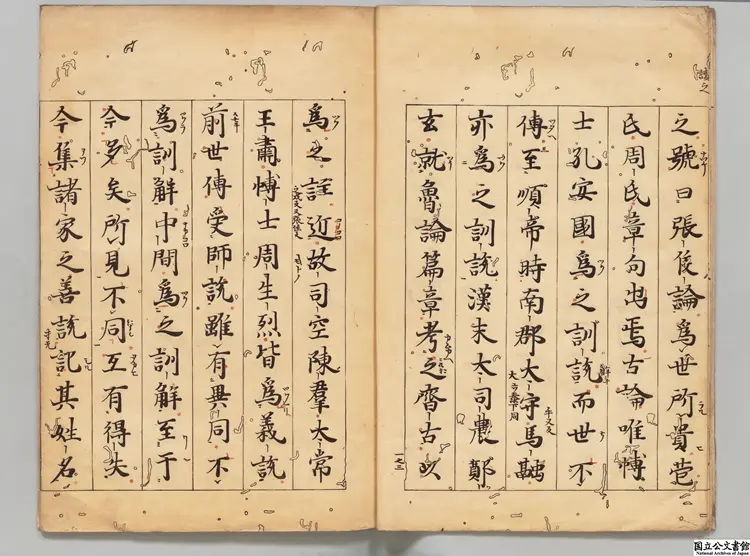 之號曰張侯論爲世所貴苞
氏周氏章句出焉古論唯博
士孔安國爲之訓說而世不
傳至順帝時南郡太守馬融
亦爲之訓說漢末大司農鄭
玄就魯論篇章考之齊古以
爲之註近故司空陳羣太常
王肅博士周生烈皆爲義說
前世傳受師說雖有異同不
爲訓解中間爲之訓解至于
今多矣所見不同互有得失
今集諸家之善說記其姓名
国立公文書館
National Archives of Japan